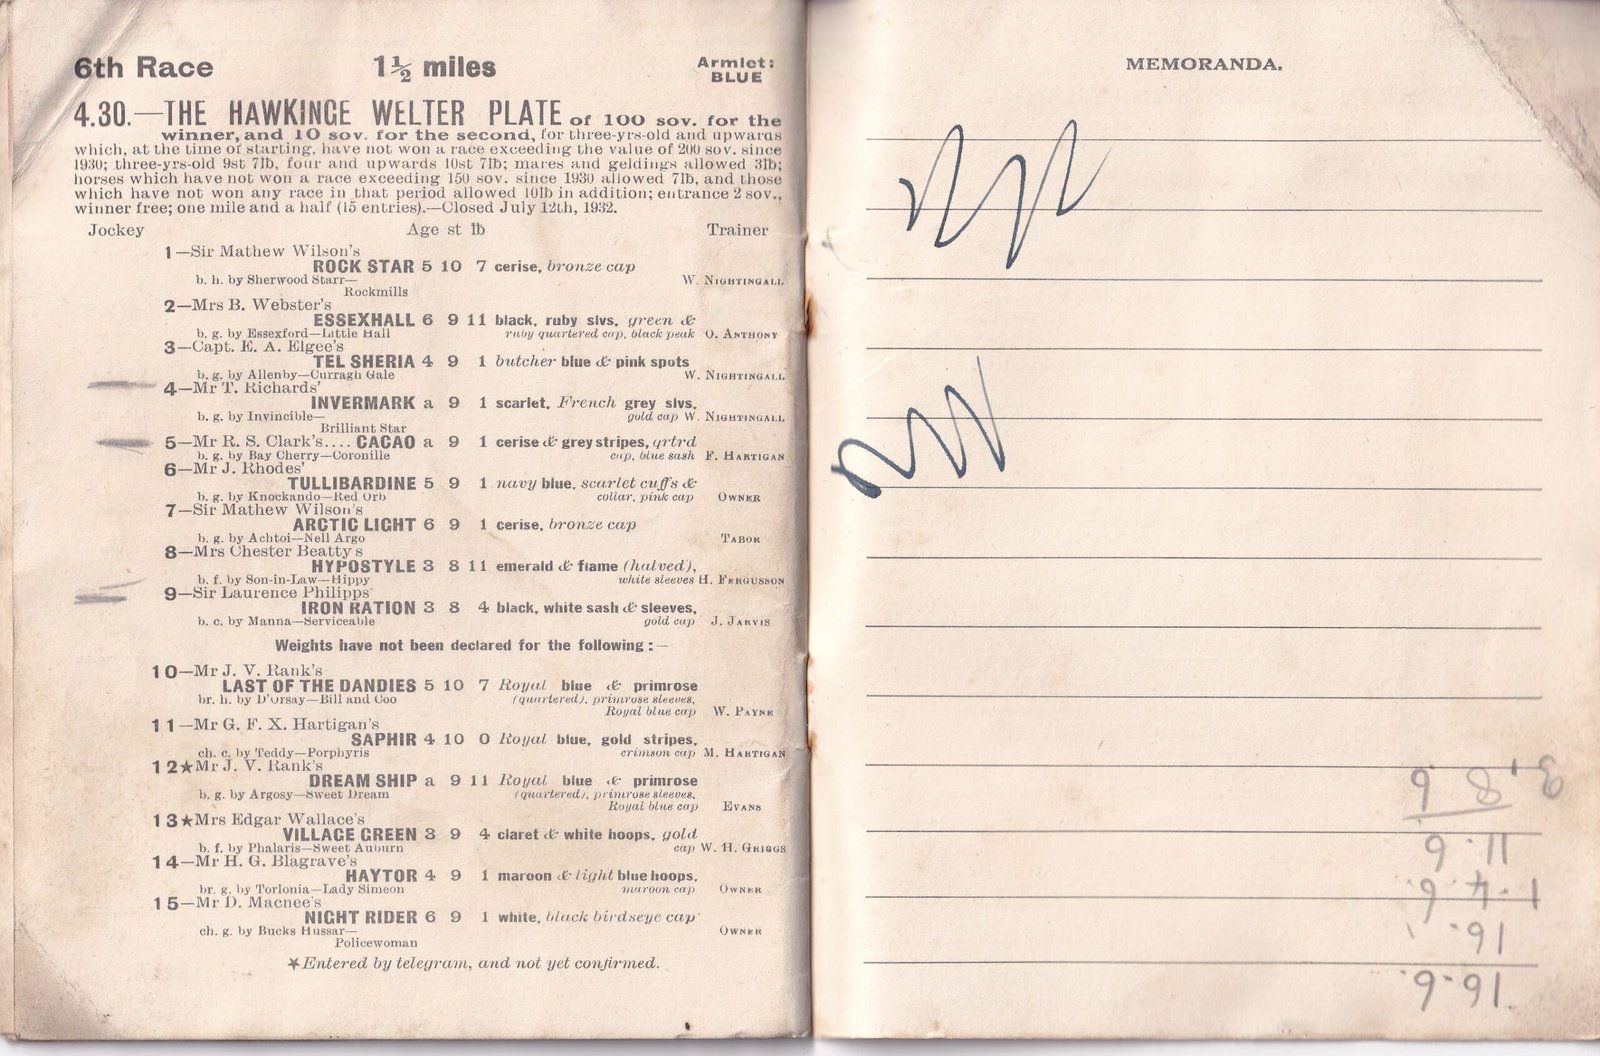 6th Race 1½ miles Armlet: BLUE
4.30.—THE HAWKINGE WELTER PLATE of 100 sov. for the
winner, and 10 sov. for the second, for three-yrs-old and upwards
which, at the time of starting, have not won a race exceeding the value of 200 sov. since
1930; three-yrs-old 9st 7lb, four and upwards 10st 7lb; mares and geldings allowed 3lb;
horses which have not won a race exceeding 150 sov. since 1930 allowed 7lb, and those
which have not won any race in that period allowed 10lb in addition; entrance 2 sov.,
winner free; one mile and a half (15 entries).—Closed July 12th, 1932.
Jockey Age st lb Trainer
1—Sir Mathew Wilson's
ROCK STAR 5 10 7 cerise, bronze cap
b. h. by Sherwood Starr— W. NIGHTINGALL
Rockmills
2—Mrs B. Webster's
ESSEXHALL 6 9 11 black, ruby slvs, green &
b. g. by Essexford—Little Hall ruby quartered cap, black peak O. ANTHONY
3—Capt. E. A. Elgee's
TEL SHERIA 4 9 1 butcher blue & pink spots
b. g. by Allenby—Curragh Gale W. NIGHTINGALL
4—Mr T. Richards'
INVERMARK a 9 1 scarlet, French grey slvs,
b. g. by Invincible— gold cap W. NIGHTINGALL
Brilliant Star
5—Mr R. S. Clark's.... CACAO a 9 1 cerise & grey stripes, qrtrd
b. g. by Bay Cherry—Coronille cap, blue sash F. HARTIGAN
6—Mr J. Rhodes'
TULLIBARDINE 5 9 1 navy blue, scarlet cuffs &
b. g. by Knockando—Red Orb collar, pink cap OWNER
7—Sir Mathew Wilson's
ARCTIC LIGHT 6 9 1 cerise, bronze cap
b. g. by Achtoi—Nell Argo TABOR
8—Mrs Chester Beatty's
HYPOSTYLE 3 8 11 emerald & flame (halved),
b. f. by Son-in-Law—Hippy white sleeves H. FERGUSSON
9—Sir Laurence Philipps'
IRON RATION 3 8 4 black, white sash & sleeves,
b. c. by Manna—Serviceable gold cap J. JARVIS
Weights have not been declared for the following:—
10—Mr J. V. Rank's
LAST OF THE DANDIES 5 10 7 Royal blue & primrose
br. h. by D'Orsay—Bill and Coo (quartered), primrose sleeves,
Royal blue cap W. PAYNE
11—Mr G. F. X. Hartigan's
SAPHIR 4 10 0 Royal blue, gold stripes,
ch. c. by Teddy—Porphyris crimson cap M. HARTIGAN
12★Mr J. V. Rank's
DREAM SHIP a 9 11 Royal blue & primrose
b. g. by Argosy—Sweet Dream (quartered), primrose sleeves,
Royal blue cap EVANS
13★Mrs Edgar Wallace's
VILLAGE GREEN 3 9 4 claret & white hoops, gold
b. f. by Phalaris—Sweet Auburn cap W. H. GRIGGS
14—Mr H. G. Blagrave's
HAYTOR 4 9 1 maroon & light blue hoops,
br. g. by Torlonia—Lady Simeon maroon cap OWNER
15—Mr D. Macnee's
NIGHT RIDER 6 9 1 white, black birdseye cap
ch. g. by Bucks Hussar— OWNER
Policewoman
★Entered by telegram, and not yet confirmed.
MEMORANDA.